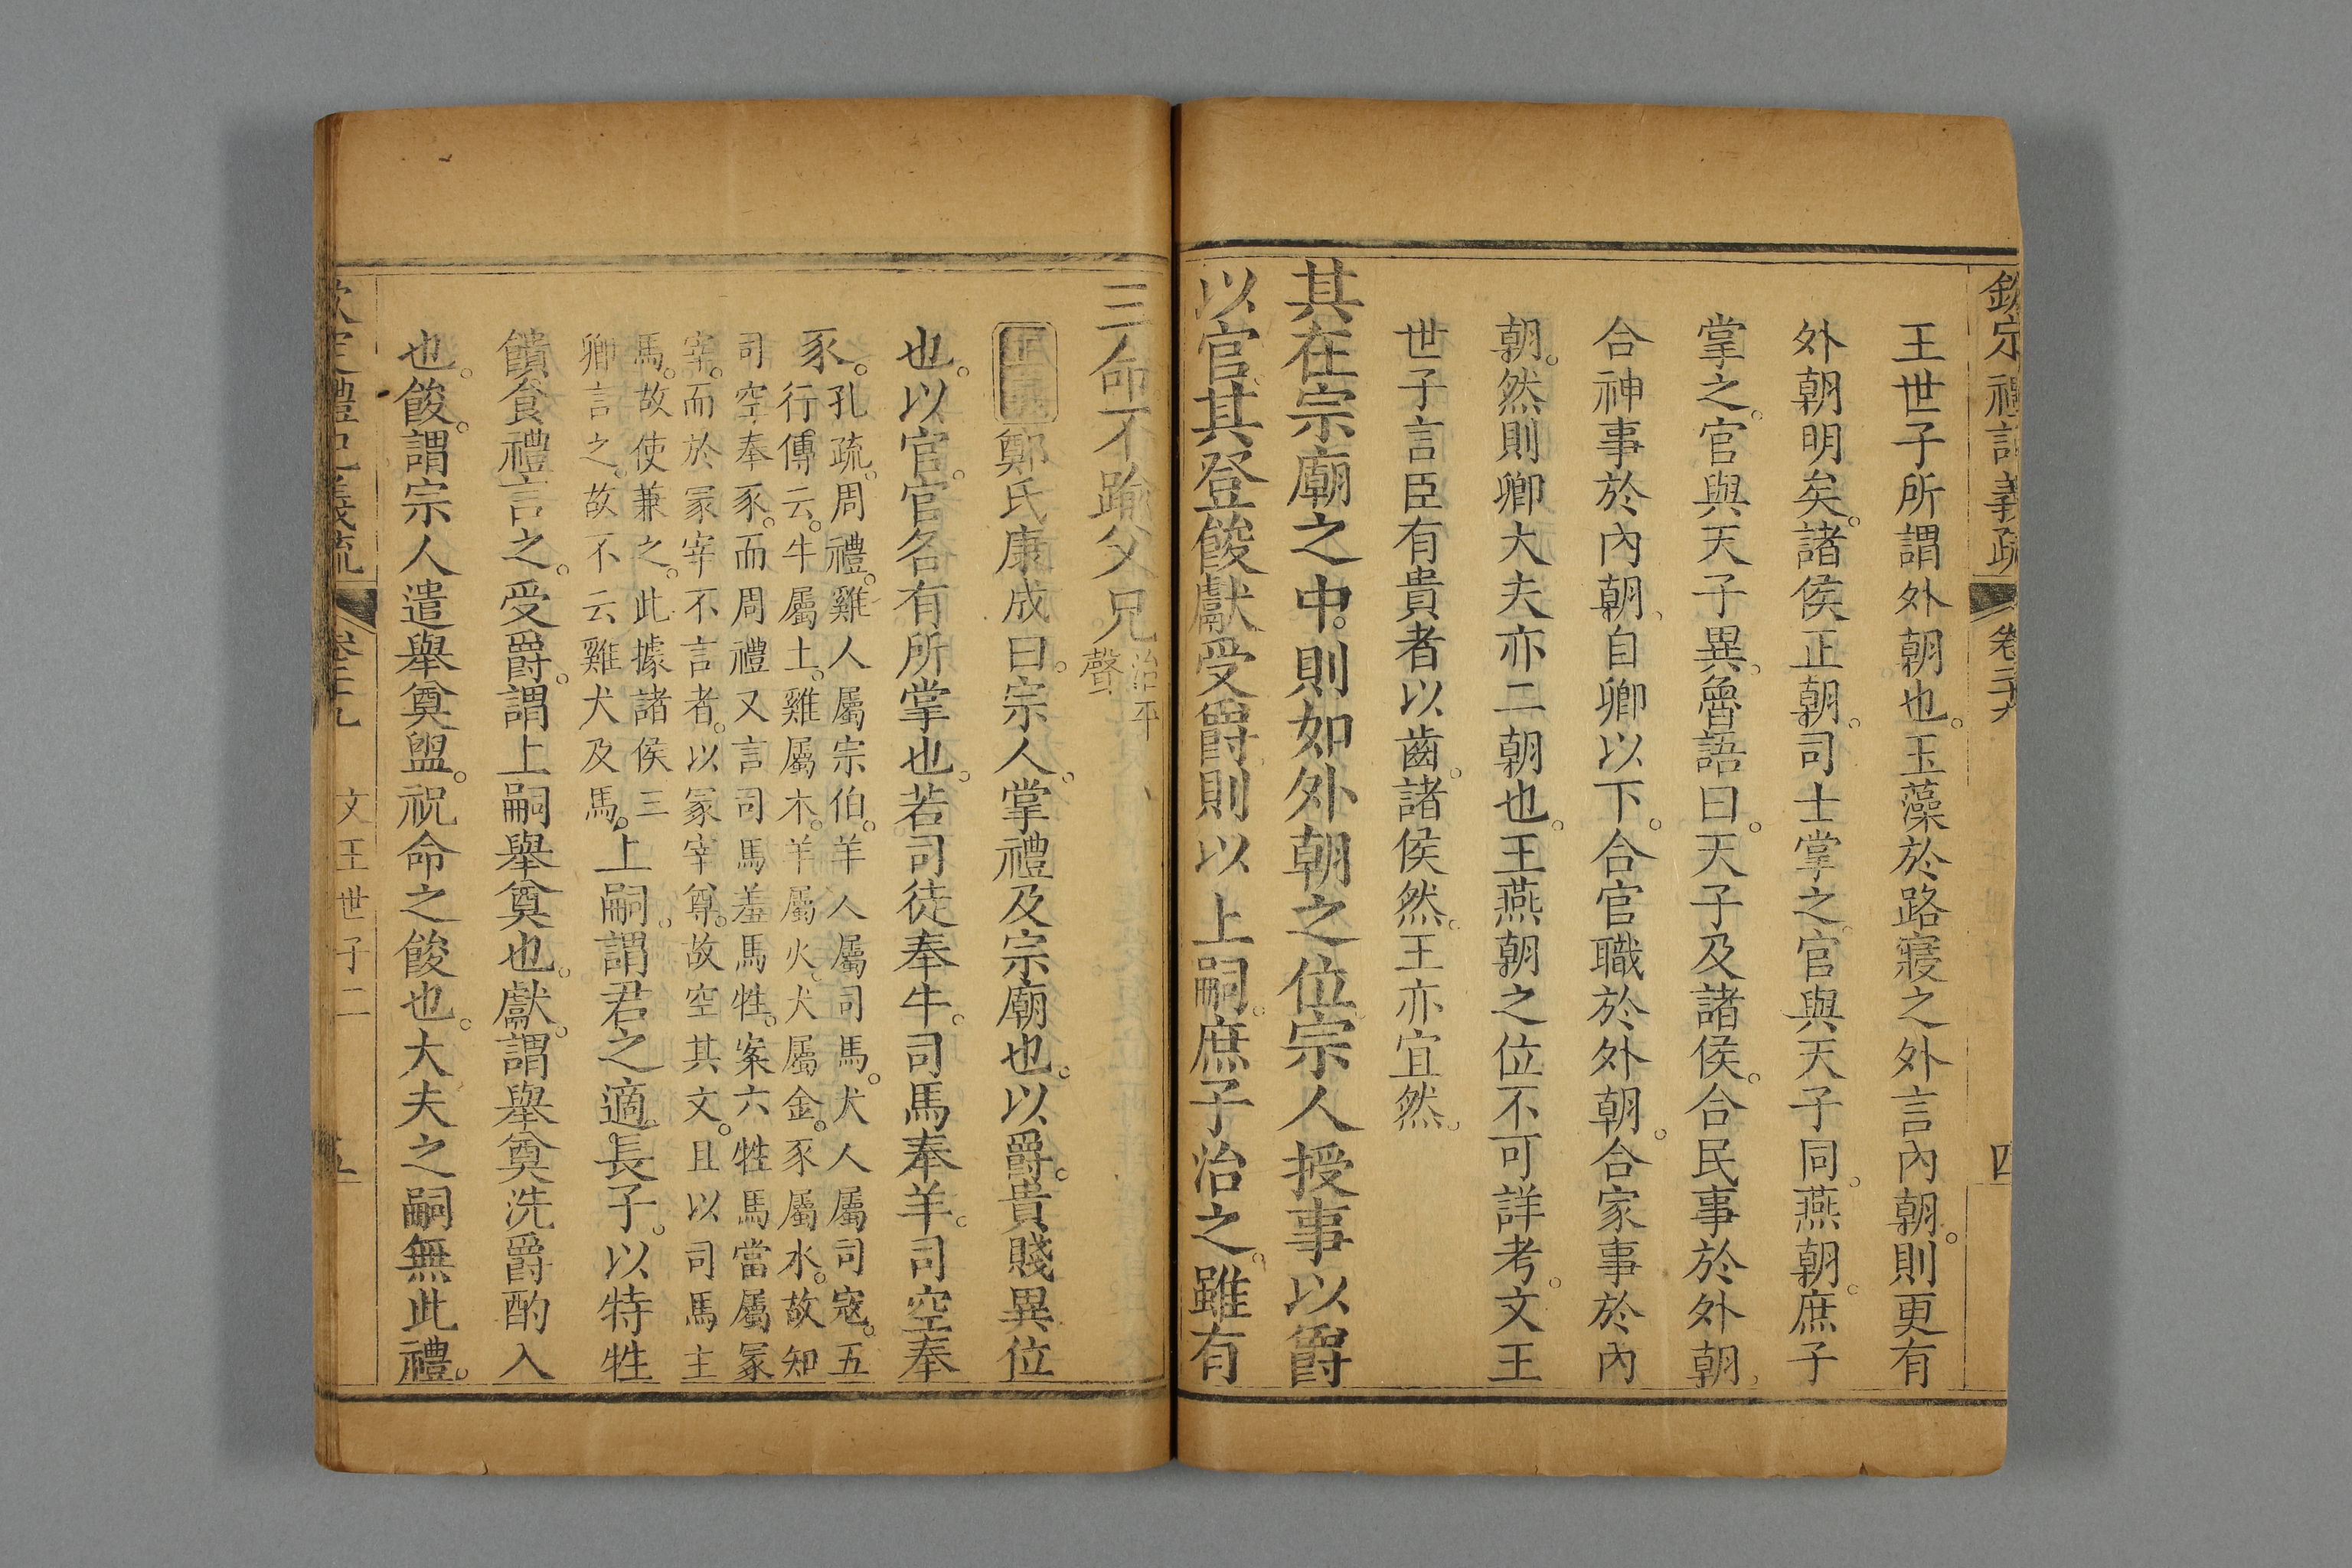 欽定禮記義疏 卷二十九 四
王世子所謂外朝也。玉藻於路寢之外言內朝。則更有
外朝明矣。諸侯正朝。司士掌之。官與天子同。燕朝。庶子
掌之。官與天子異。魯語曰。天子及諸侯。合民事於外朝、
合神事於內朝、自卿以下。合官職於外朝。合家事於內
朝。然則卿大夫亦二朝也。王燕朝之位不可詳考。文王
世子言臣有貴者以齒。諸侯然。王亦宜然。
其在宗廟之中。則如外朝之位。宗人授事以爵
以官。其登餕獻受爵。則以上嗣。庶子治之。雖有
三命不踰父兄 治平
聲
正義 鄭氏康成曰。宗人。掌禮及宗廟也。以爵。貴賤異位
也。以官。官各有所掌也。若司徒奉牛。司馬奉羊。司空奉
豕。
孔疏。周禮。雞人屬宗伯。羊人屬司馬。犬人屬司寇。五
行傳云。牛屬土。雞屬木。羊屬火。犬屬金。豕屬水。故知
司空奉豕。而周禮又言司馬羞馬牲。案六牲馬當屬冢
宰。而於冢宰不言者。以冢宰尊。故空其文。且以司馬主
馬。故使兼之。此據諸侯三
卿言之。故不云雞犬及馬。
上嗣。謂君之適長子。以特牲
饋食禮言之。受爵。謂上嗣舉奠也。獻。謂舉奠洗爵酌入
也。餕。謂宗人遣舉奠盥。祝命之餕也。大夫之嗣無此禮。
欽定禮記義疏 卷二十九 文王世子二 五